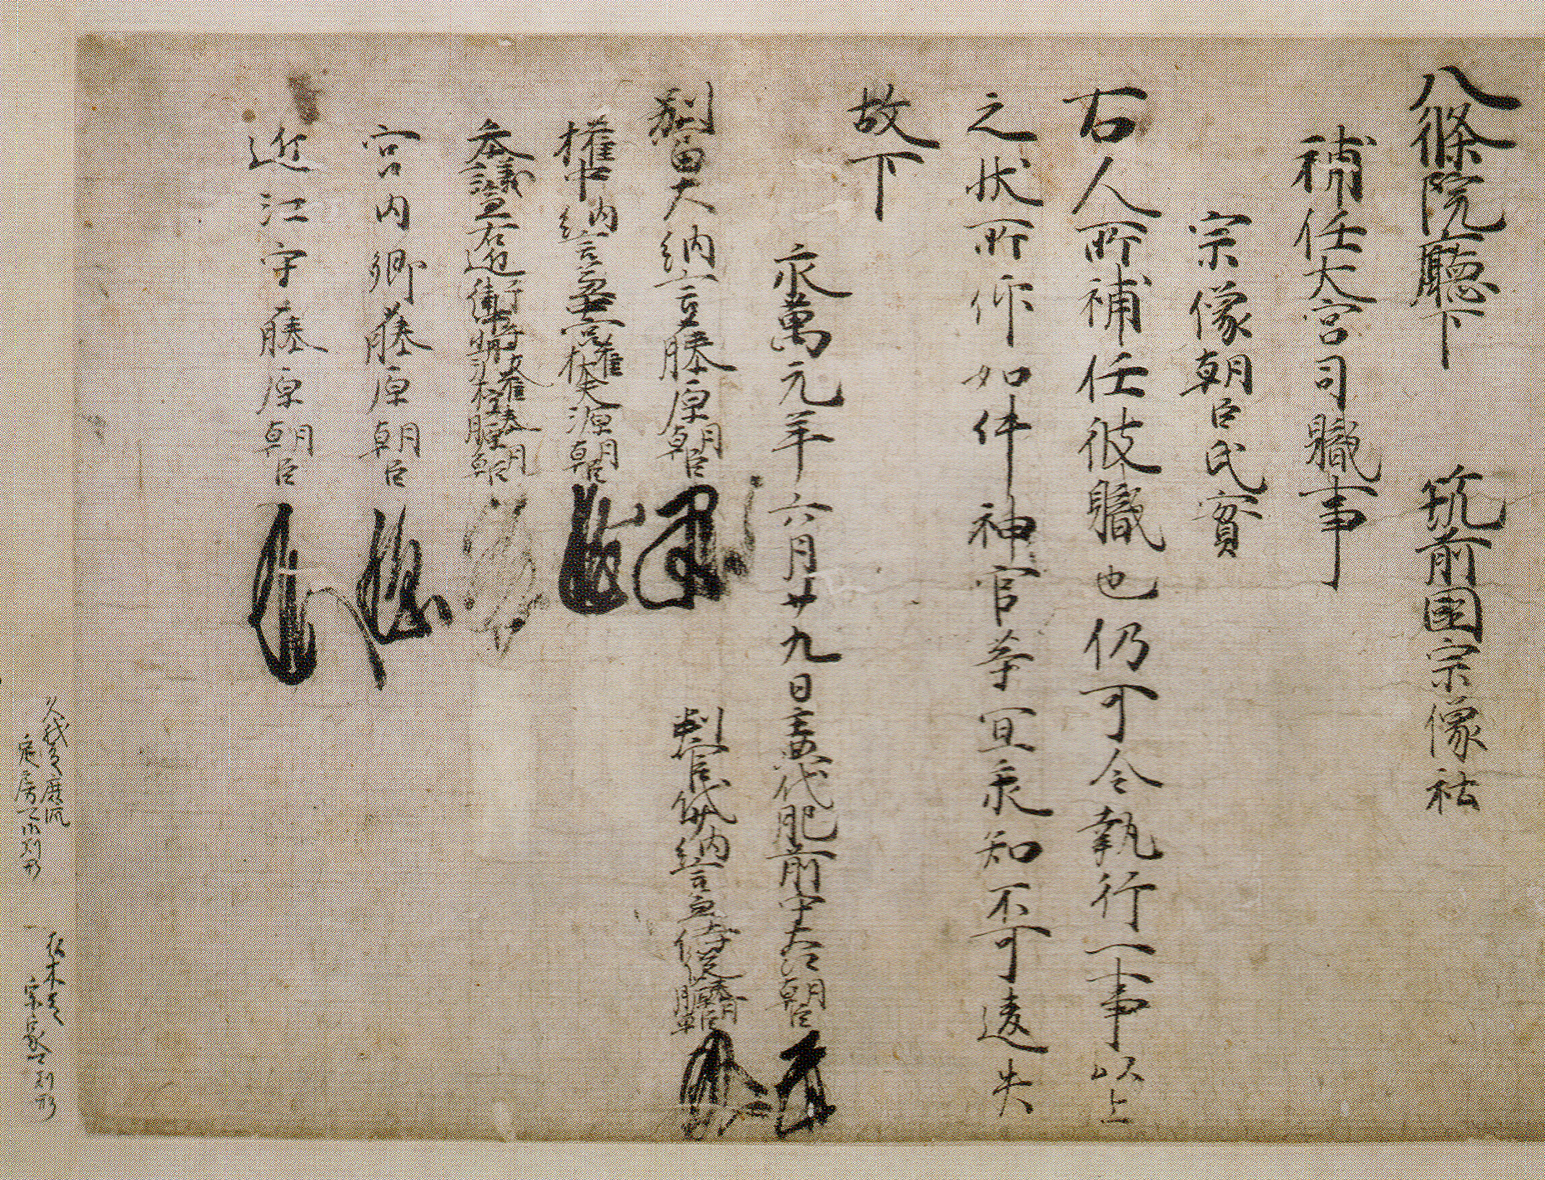 八條院廳下　筑前国宗像社
補任大宮司職事
宗像朝臣氏實
右人所補任彼職也仍可令執行一事以上
之状所仰如件神官等宜承知不可違失
故下
永萬元年六月廿九日主典代肥前守大江朝臣
別當大納言藤原朝臣　判官代少納言兼侍従藤原朝臣
權中納言兼　源朝臣
参議　右近衛　朝臣
宮内卿藤原朝臣
近江守藤原朝臣